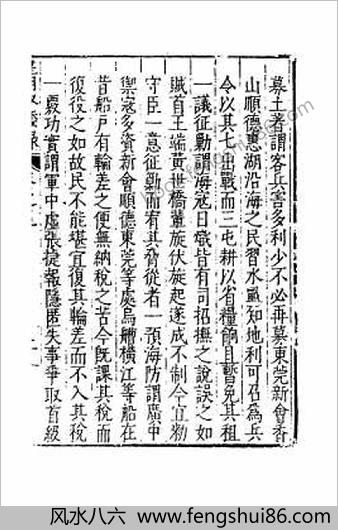 募土著謂客兵害多利少不必再募東莞新會香
山順德惠湖沿海之民習水戰知地利可召為兵
令以其七出戰而三屯耕以省糧餉且暫免其租
一議征勦謂海寇日熾皆有司招撫之說誤之如
賊首王端黃世橋黨旋伏旋起遂成不制今宜勑
守臣一意征勦而宥其脅從者一預海防謂廣中
禦寇多資新會順德東莞等處烏艚橫江等船在
昔船戶有輪差之便無納稅之苦今既課其稅而
復役之如故民不能堪宜復其輪差而不入其稅
一覈功實謂軍中虛張捷報隱匿失事爭取首級
风水八六 fengshui86.com